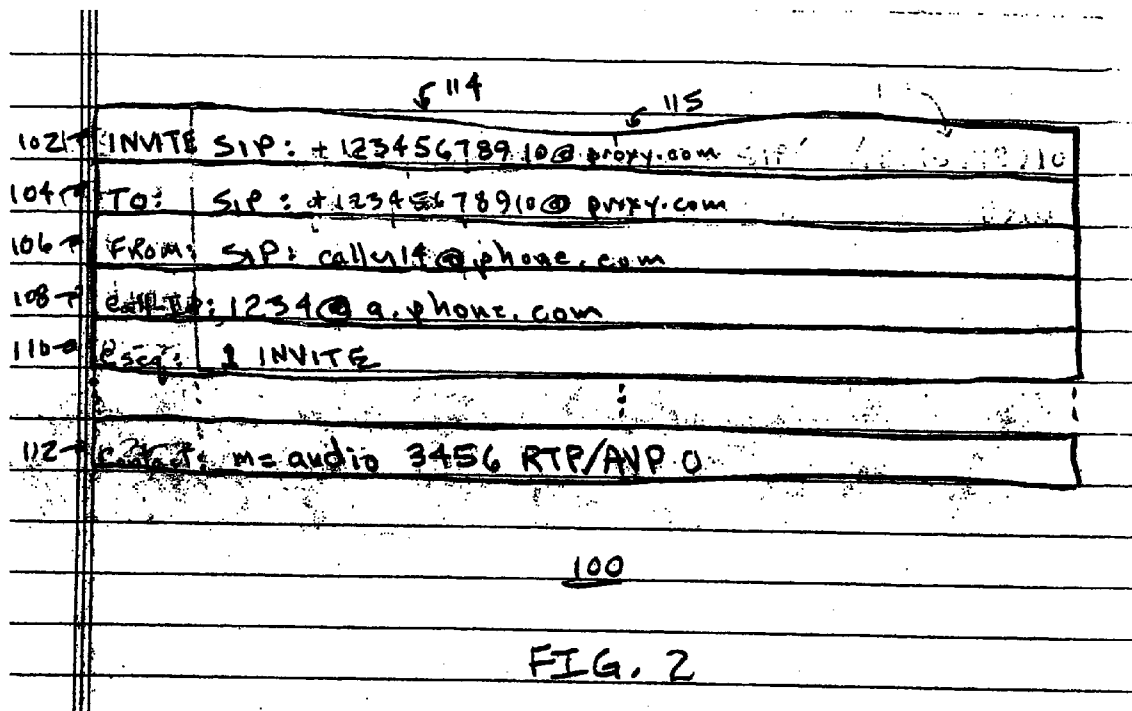 114 115
102 INVITE SIP: +12345678910@proxy.com
104 TO: SIP: +12345678910@proxy.com
106 FROM: SIP: @phone.com
108 1234@a.phone.com
110 Cseq: 1 INVITE
112 Contact: m= audio 3456 RTP/AVP 0
100
FIG. 2